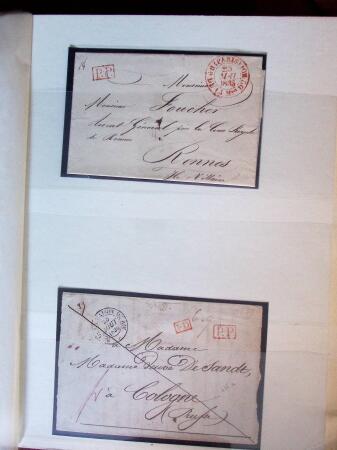 P.P.
Monsieur
Monsieur Foucher
Avocat Général près la Cour Royale
de Rennes
Rennes
Ille & Vilaine
P.D.
P.P.
Madame
Madame Veuve De Sandt
à Cologne
Prusse